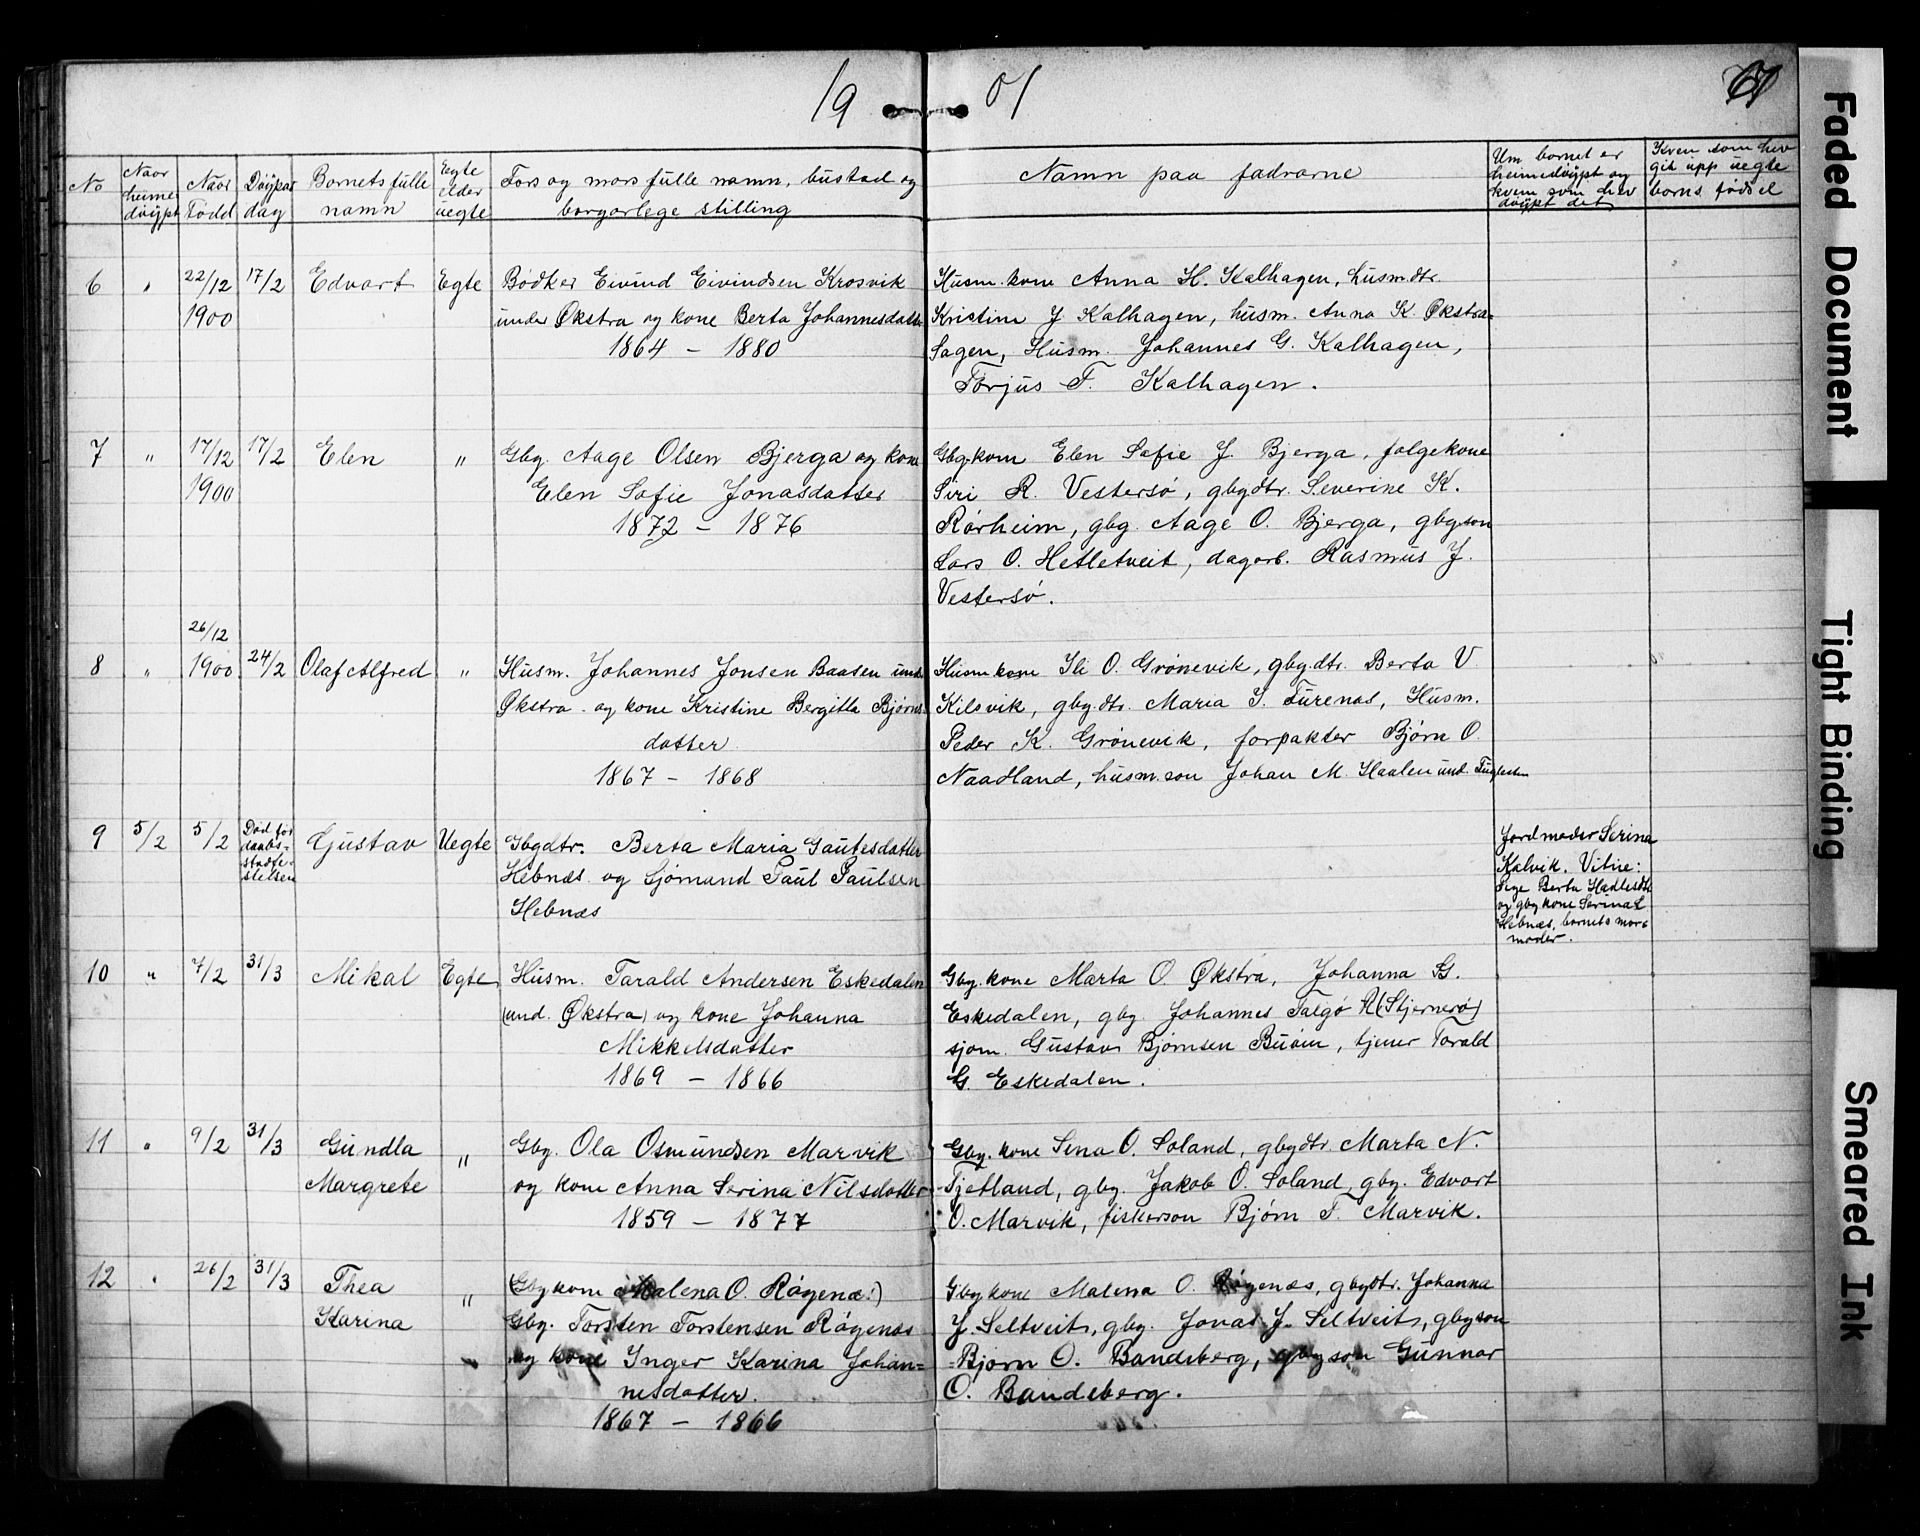 19 01
No
Naar heime døypt
Naar Fødd
Døypar dag
Bornets fulle namn
Egte elder uegte
Fars og mors fulle namn, bustad og borgarlege stilling
Namn paa fadrarne
Um bornet er heimedøypt og kvem som hev døypt det
Kven som hev git upp uegte borns fødsel
6 " 22/12 1900 17/2 Edvart Egte
Bødker Eivind Eivindsen Krosvik
under Økstra og kone Berta Johannesdatter
1864 - 1880
Husm. kone Anna H. Kalhagen, husm.dtr.
Kristine J Kalhagen, husm. Anna K. Økstra=
Husm. Johannes G. Kalhagen,
Torjus T. Kalhagen.
7 " 17/12 1900 17/2 Elen "
Gbg. Aage Olsen Bjerga og kone
Elen Sofie Jonasdatter
1872 - 1876
Gbg.kone Elen Sofie J. Bjerga, følgekone
Siri R. Vestersø, gbgdtr. Severine K.
Rørheim, gbg. Aage O. Bjerga, gbg.son
Lars O. Hetletveit, dagarb. Rasmus J.
Vestersø.
8 " 26/12 1900 24/2 Olaf Alfred "
Husm. Johannes Jonsen Baasen und.
Økstra og kone Kristine Bergitta Bjørns
datter
1867 - 1868
Husm.kone Ili O. Grønevik, gbg.dtr. Berta V.
Kilevik, gbg.dtr. Maria I. Turenas, Husm.
Peder K. Grønevik, forpakter Bjørn O.
Naadland, husm.son Johan M. Haalen und.
9 5/2 5/2 Død før daabs=stadfe=stelsen Gustav Uegte
Gbgdtr. Berta Maria Gautesdatter
Hebnæs og Sjømand Paul Paulsen
Hebnæs
Jordmoder Serina
Kalvik. Vitne:
Berta
og gbg kone Serina
Hebnæs, bornets mor=
moder.
10 " 7/2 31/3 Mikal Egte
Husm. Tarald Andersen Eskedalen
(und. Økstra) og kone Johanna
Mikkelsdatter
1869 - 1866
Gbg. kone Marta O. Økstra, Johanna G.
Eskedalen, gbg. Johannes Talgø R (Stjernerø)
sjøm. Gustav Bjørnsen Buøin, tjener Tarald
G. Eskedalen.
11 " 9/2 31/3 Gundla Margrete "
Gbg. Ola Osmundsen Marvik
og kone Anna Serina Nilsdatter
1859 - 1877
Gbg. kone Sena O. Soland, gbgdtr. Marta N.
Tjetland, gbg. Jakob O. Soland, gbg. Edvart
O. Marvik, fiskerson Bjørn T. Marvik.
12 " 26/2 31/3 Thea Karina "
(Gbg kone Malena O. Røgenæs)
Gbg. Torsten Torstensen Røgenæs
og kone Inger Karina Johan=
nesdatter.
1867 - 1866
Gbg kone Malena O. Røgenæs, gbgdtr. Johanna
J. Seltveit, gbg. Jonas J. Seltveit, gbgson
Bjørn O. Bandeberg, gbgson Gunnar
O. Bandeberg.
Faded Document
Tight Binding
Smeared Ink